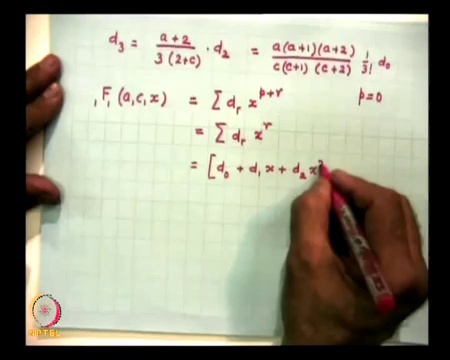 d₃ = a+2 / 3(2+c) · d₂ = a(a+1)(a+2) / c(c+1)(c+2) 1/3! d₀
₁F₁(a,c,x) = Σ dᵣ x^(p+r) p=0
= Σ dᵣ x^r
= [d₀ + d₁ x + d₂ x²
NPTEL